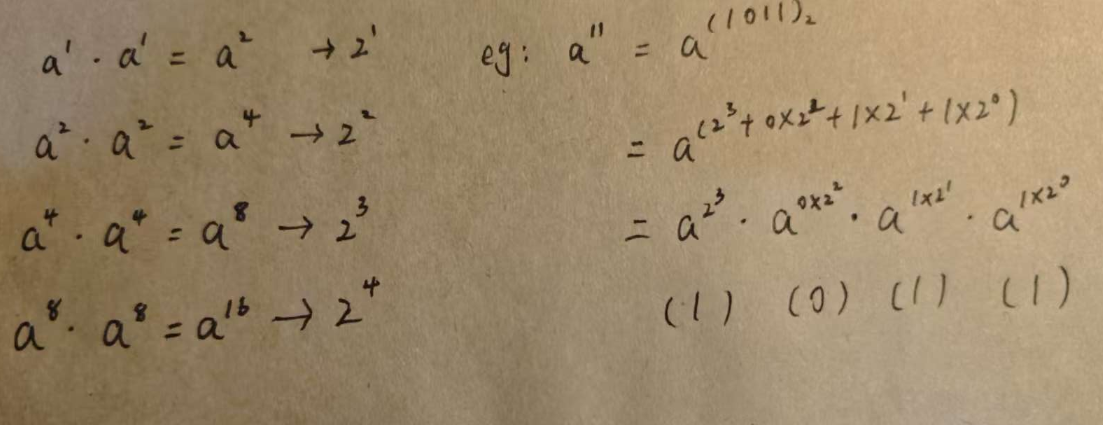 a¹ · a¹ = a² → 2¹
a² · a² = a⁴ → 2²
a⁴ · a⁴ = a⁸ → 2³
a⁸ · a⁸ = a¹⁶ → 2⁴
eg: a¹¹ = a^(1011)₂
= a^(2³ + 0×2² + 1×2¹ + 1×2⁰)
= a^2³ · a^0×2² · a^1×2¹ · a^1×2⁰
(1) (0) (1) (1)